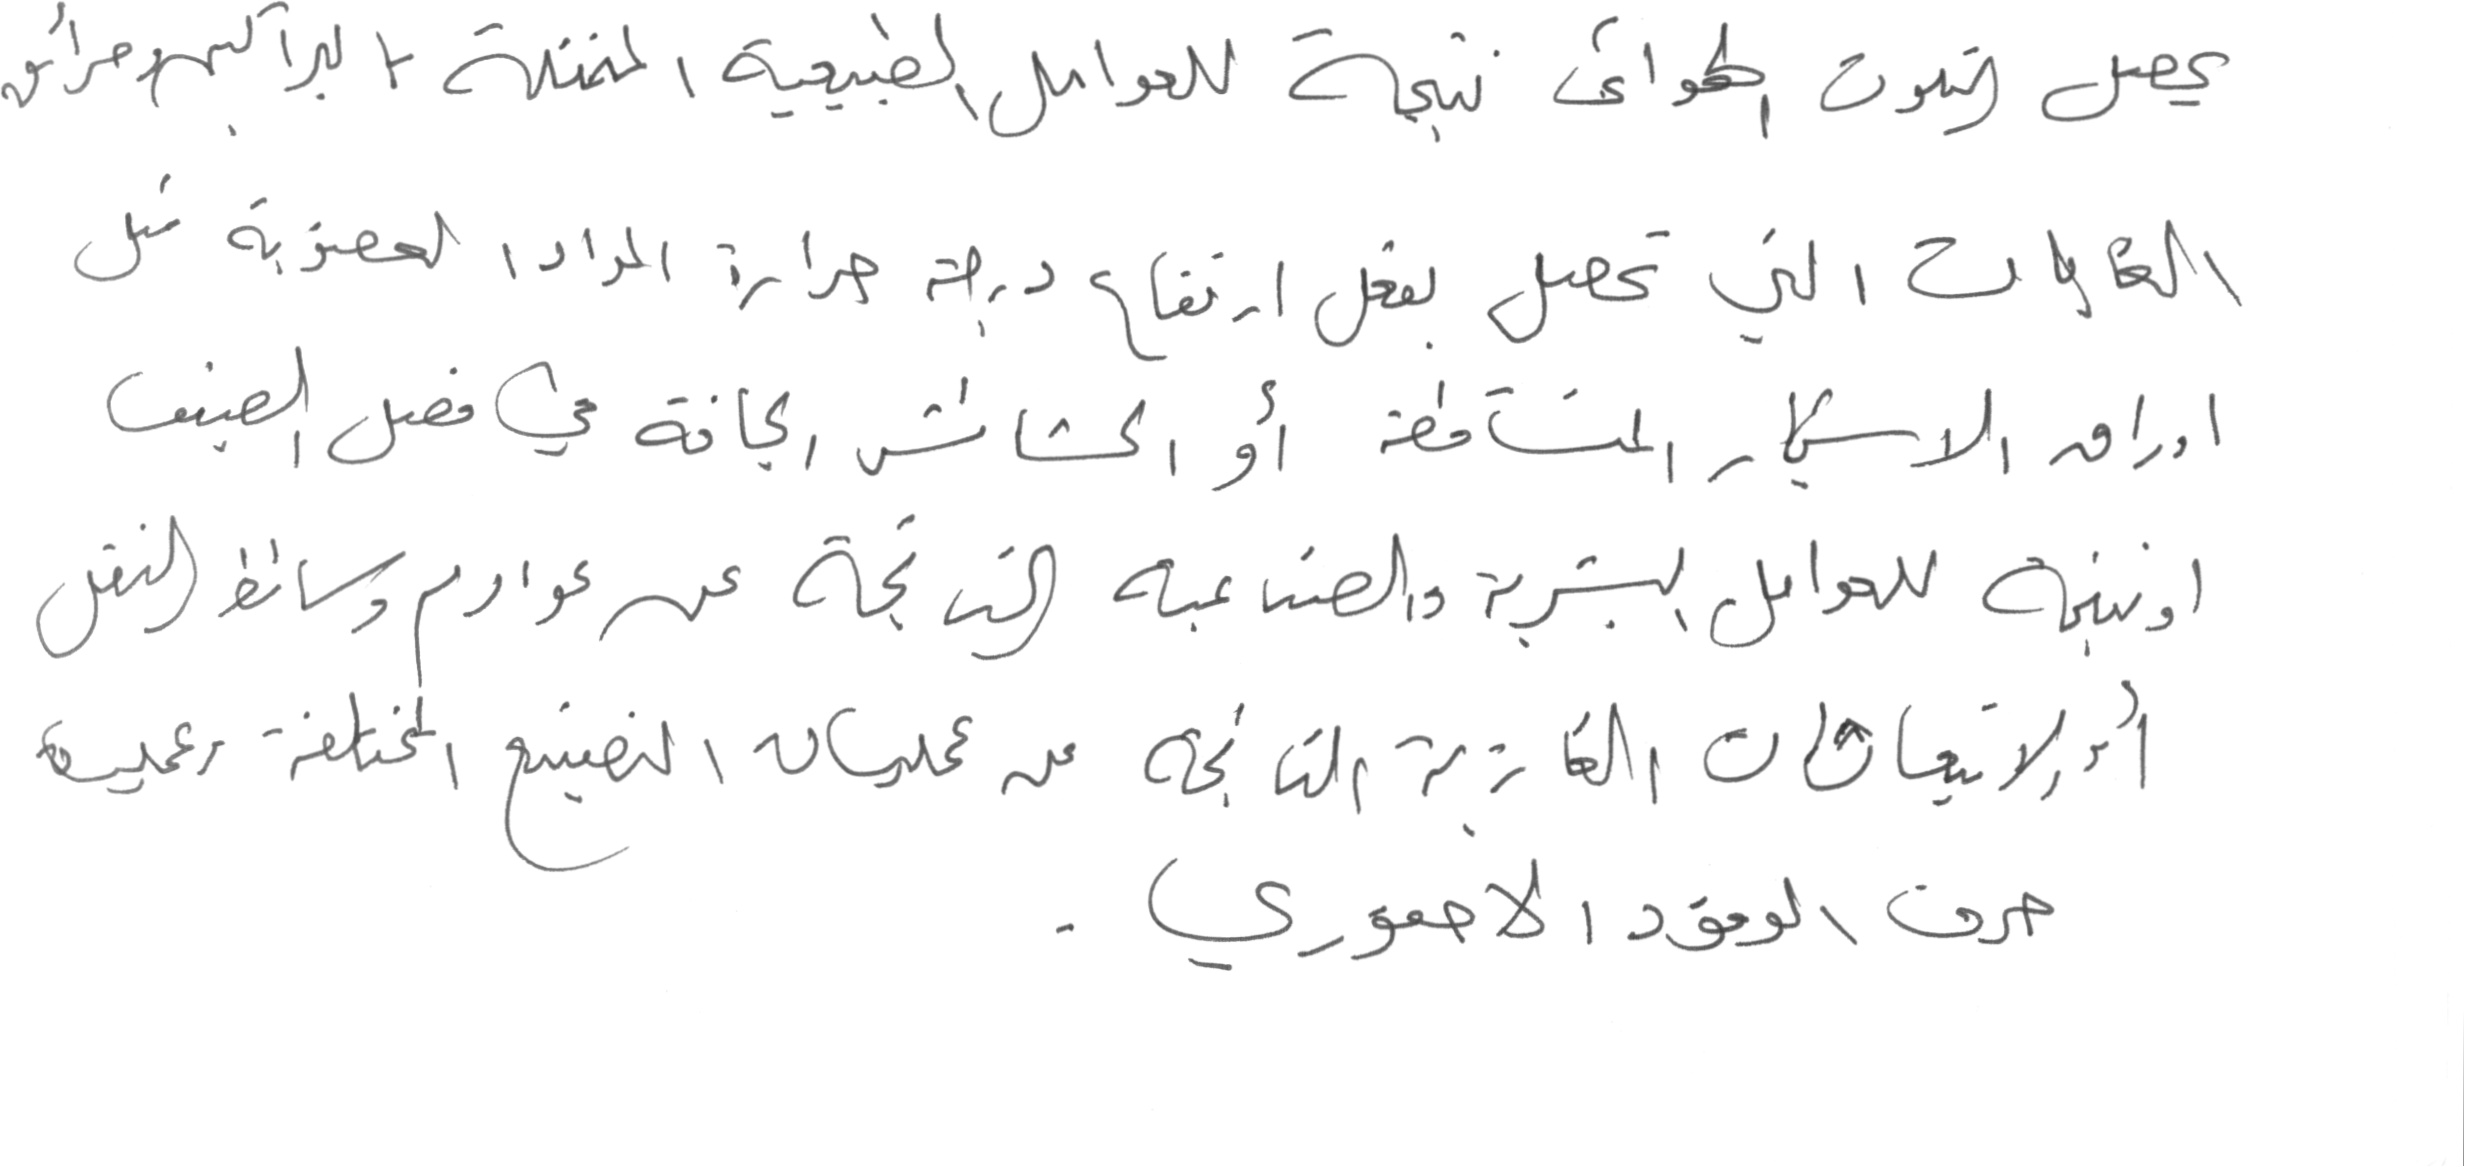 يحصل التلوث الهوائي نتيجة للعوامل الطبيعية المختلفة كالبراكين وحرائق
الغابات التي تحصل بفعل ارتفاع درجة حرارة المواد العضوية مثل
اوراق الاشجار المتساقطة أو الحشائش الجافة في فصل الصيف
او نتيجة للعوامل البشرية والصناعية الناتجة عن عوادم وسائط النقل
أو الانبعاثات الغازية الناتجة عن عمليات التصنيع المختلفة وعملية
حرق الوقود الاحفوري .